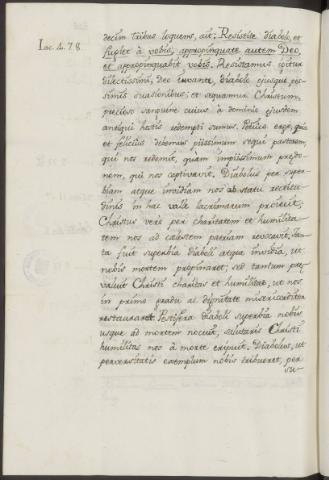 Iac. 4. 7. 8.
decim tribus loquens, ait: Resistite diabolo, et
fugiet à vobis; appropinquate autem Deo,
et appropinquabit vobis. Resistamus igitur
dilectissimi, Deo iuvante, diabolo ejusque pes-
simis suasionibus; et sequamur Christum,
pretioso sanguine cuius à dominio ejusdem
antiqui hostis redempti sumus. Potius ergo, quia
et felicius debemus piissimum sequi pastorem,
qui nos redemit, quam impiissimum prædo-
nem, qui nos captivavit. Diabolus per super-
biam atque invidiam nos ab statu rectitu-
dinis in hac valle lacrimarum proiecit;
Christus verò per charitatem et humilita-
tem nos ad cælestem patriam revocavit. Tan-
ta fuit superbia diaboli atque invidia, ut
nobis mortem propinaret; sed tantum præ-
valuit Christi charitas et humilitas, ut nos
in primo gradu ac dignitate misericorditer
restauraret. Pestifera diaboli superbia nobis
usque ad mortem nocuit, salutaris Christi
humilitas nos à morte eripuit. Diabolus, ut
perversitatis exemplum nobis tribueret, per
su-